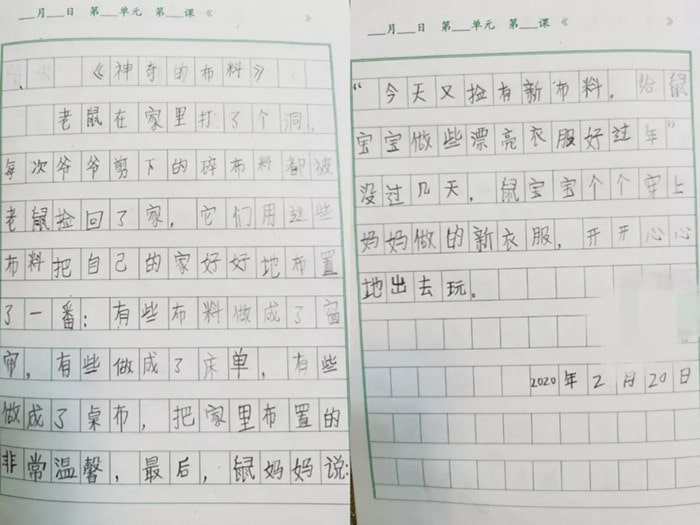 ___月___日 第___单元 第___课《 》
《神奇的布料》
老鼠在家里打了个洞,
每次爷爷剪下的碎布料都被
老鼠捡回了家,它们用这些
布料把自己的家好好地布置
了一番:有些布料做成了窗
帘,有些做成了床单,有些
做成了桌布,把家里布置的
非常温馨,最后,鼠妈妈说:
___月___日 第___单元 第___课《 》
“今天又捡有新布料。给鼠
宝宝做些漂亮衣服好过年”
没过几天,鼠宝宝个个穿上
妈妈做的新衣服,开开心心
地出去玩。
2020年2月20日